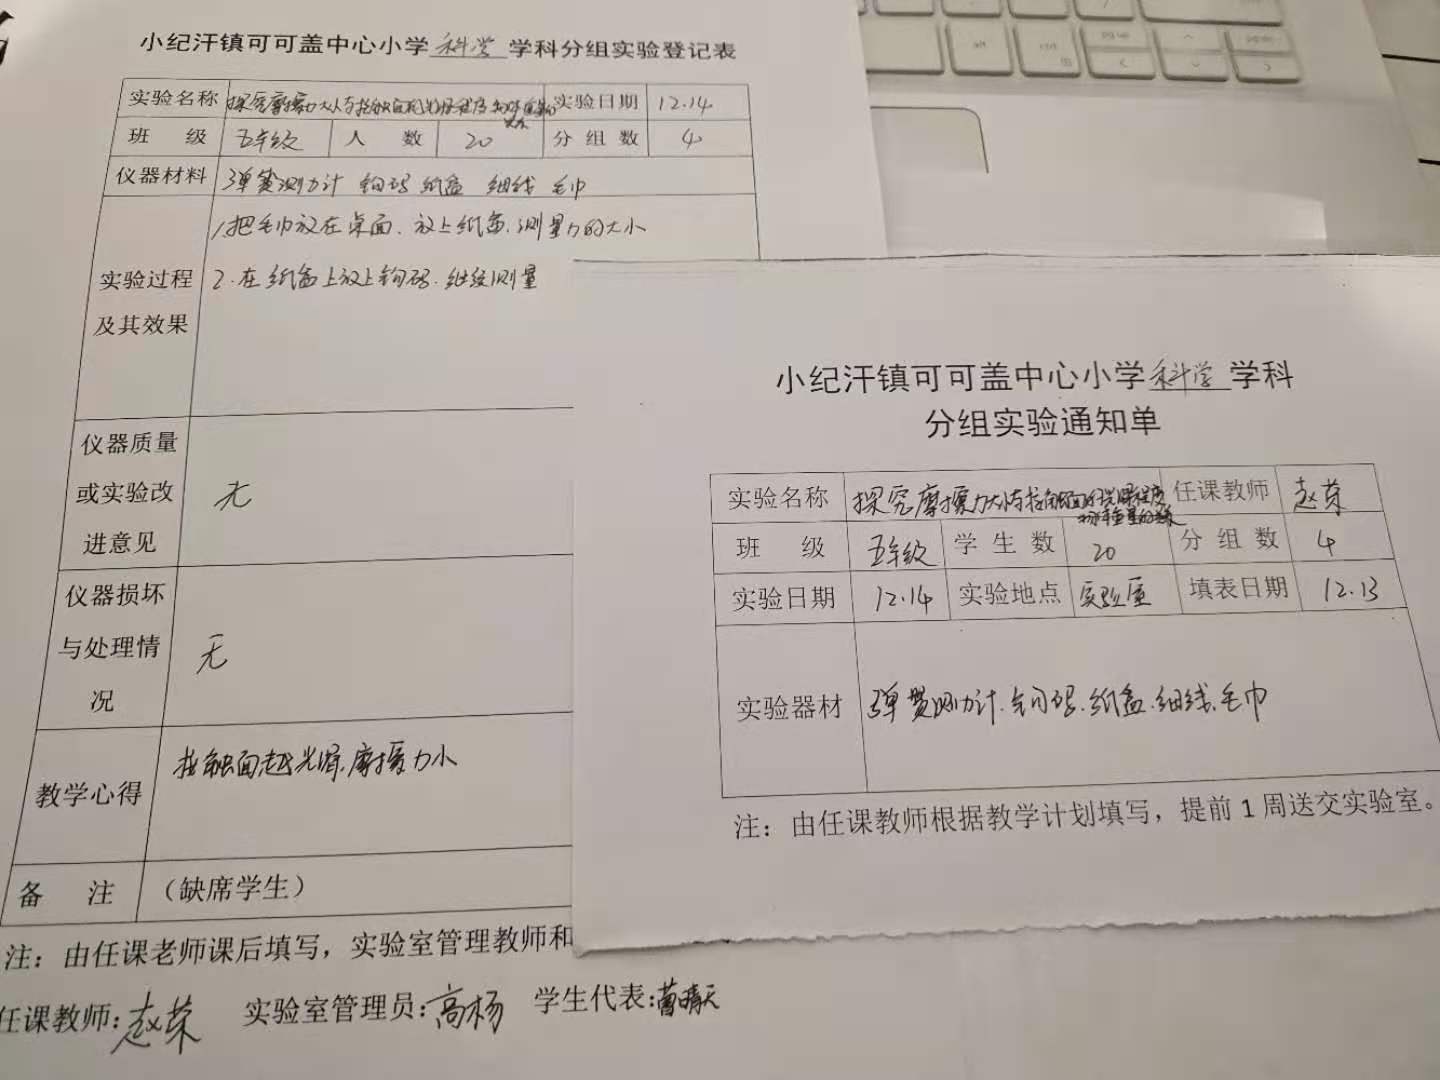 小纪汗镇可可盖中心小学科学学科分组实验登记表
实验名称 探究摩擦力大小与接触面的光滑程度物体重量的关系 实验日期 12.14
班 级 五年级 人 数 20 分 组 数 4
仪器材料 弹簧测力计 钩码 纸盒 细线 毛巾
实验过程及其效果
1.把毛巾放在桌面、放上纸盒.测量力的大小
2.在纸盒上放上钩码.继续测量
仪器质量
或实验改
进意见
无
仪器损坏
与处理情
况
无
教学心得 接触面越光滑.摩擦力小
备 注 （缺席学生）
注：由任课老师课后填写，实验室管理教师和
任课教师:赵荣 实验室管理员:高杨 学生代表:曹晴天
小纪汗镇可可盖中心小学科学学科
分组实验通知单
实验名称 探究摩擦力大小与接触面的光滑程度物体重量的关系 任课教师 赵荣
班 级 五年级 学 生 数 20 分 组 数 4
实验日期 12.14 实验地点 实验室 填表日期 12.13
实验器材 弹簧测力计.钩码.纸盒.细线.毛巾
注：由任课教师根据教学计划填写，提前1周送交实验室。